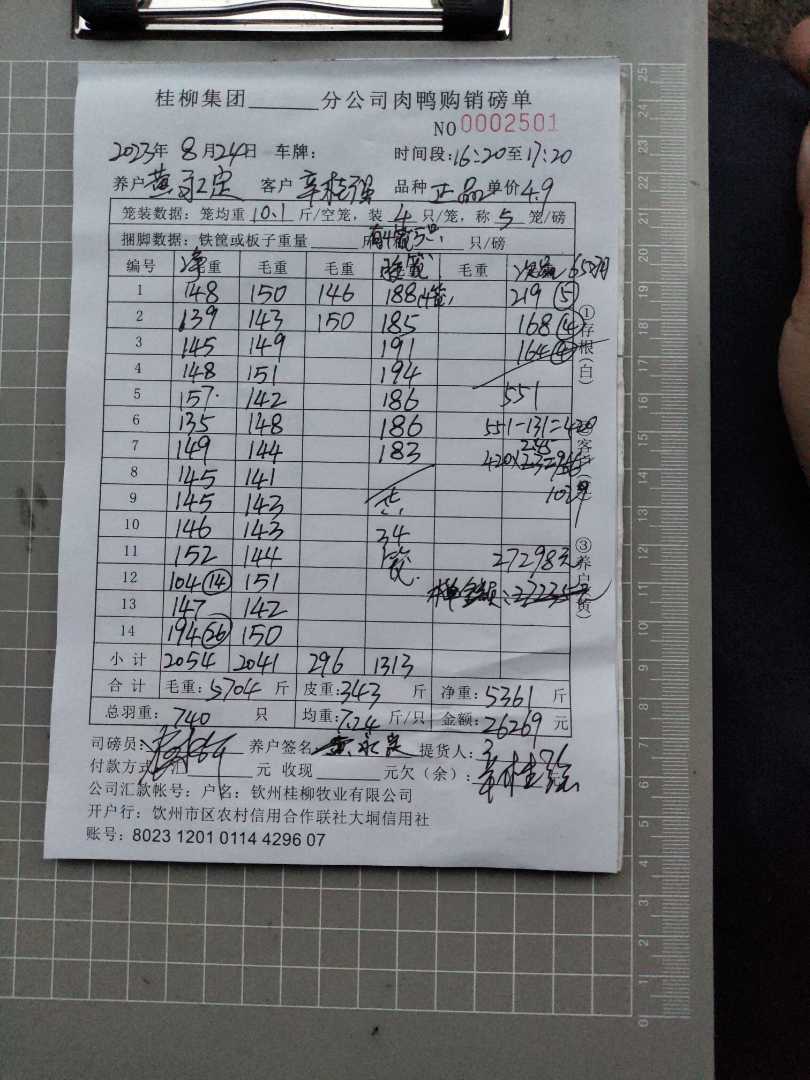 桂柳集团______分公司肉鸭购销磅单
NO 0002501
2023年 8月24日 车牌: 时间段:16:20至17:20
养户 黄永定 客户 辛桂强 品种 正品 单价4.9
笼装数据: 笼均重 10.1 斤/空笼, 装 4 只/笼, 称 5 笼/磅
捆脚数据: 铁筐或板子重量 有4笼5只 只/磅
编号 净重 毛重 毛重 毛重
1 148 150 146 188 219 ⑤
2 139 143 150 185 168 ④
3 145 149 191 164 ④
4 148 151 194
5 157 142 186 551
6 135 148 186 551-131=420
7 149 144 183
8 145 141
9 145 143 共 1029
10 146 143 34
11 152 144 笼 27298元
12 104 ⑭ 151
13 147 142
14 194 ㉖ 150
小计 2054 2041 296 1313
合计 毛重: 5704 斤 皮重: 343 斤 净重: 5361 斤
总羽重: 740 只 均重: 7.24 斤/只 金额: 26269 元
司磅员: 养户签名 黄永定 提货人:
付款方式: 汇 元 收现 元欠(余): 辛桂强
公司汇款帐号: 户名: 钦州桂柳牧业有限公司
开户行: 钦州市区农村信用合作联社大垌信用社
账号: 8023 1201 0114 4296 07
①存根(白)
②客户(红)
③养户(黄)
0 1 2 3 4 5 6 7 8 9 10 11 12 13 14 15 16 17 18 19 20 21 22 23 24 25